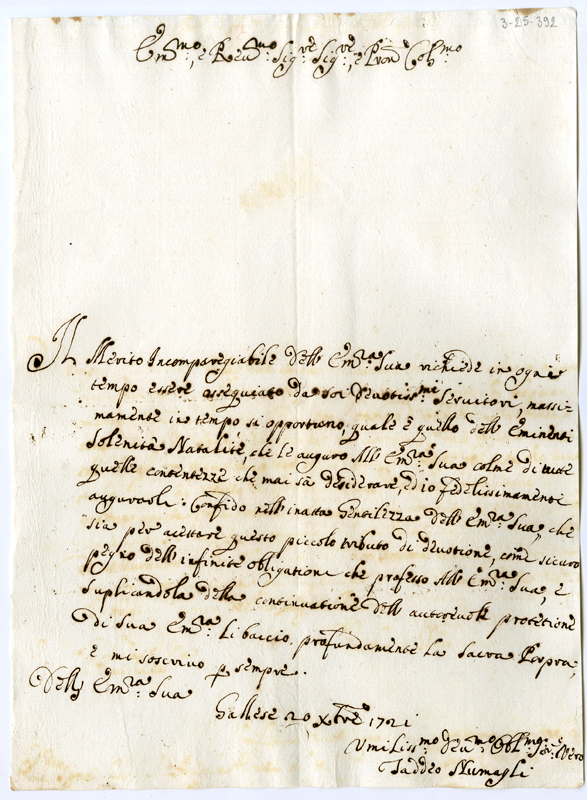 3-25-392
Em̃mo:, e Reũmo: Sigre: Sigre:, e Pron̄ Colmo:
Il Merito Incomparegiabile dell' Em̃ra: Sua richiede in ogni
tempo essere ossequiato da soi devotissmi: Servitori, massi-
mamente in tempo si opportuno, quale è quello dell' eminenti
Solenità Natalitie, che le auguro All' Em̃ra: Sua colme di tutte
quelle contentezze che mai sà desiderare, ed io fedelissimamente
augurarli: Confido nell' inatta Gentilezza dell' Em̃ra: Sua, che
sia per acettare questo piccolo tributo di devotione, come sicuro
pegno dell' infinite obligationi che professo All' Em̃ra: Sua, e
suplicandola della continuatione dell' autorevole protetione
di Sua Em̃ra: li baccio profundamente la Sacra Porpora,
e mi soscrivo p sempre.
Dell' Em̃ra: Sua
Gallese 20 Xbre 1721
Umilissmo: Deũmo: Obl͠mo: Ser:re Vero
Taddeo Numagli